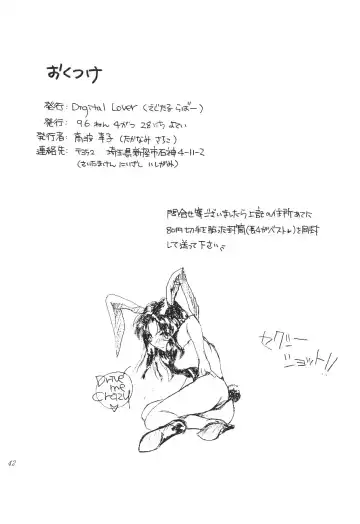 おくつけ
発行: Digital Lover (でじたる らばー)
発行: 96ねん 4がつ 28にち よてい
発行者: 高波 (たかなみ)
連絡先: 〒352 埼玉県新座市石神4-11-2
(さいたまけん にいざし いしがみ)
問合せ等ございましたら上記の住所あてに
80円切手を貼った封筒(長4がベスト)を同封
して送って下さい
セクシー
ショット!!
Drive
me
Crazy
42